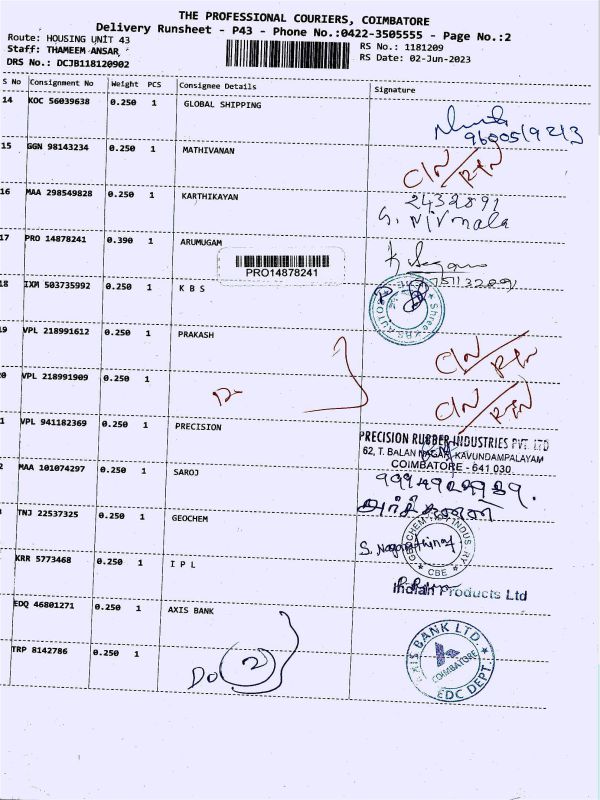 THE PROFESSIONAL COURIERS, COIMBATORE
Delivery Runsheet - P43 - Phone No.:0422-3505555 - Page No.:2
Route: HOUSING UNIT 43
RS No.: 1181209
Staff: THAMEEM ANSAR,
RS Date: 02-Jun-2023
DRS No.: DCJB118120902
S No Consignment No Weight PCS Consignee Details Signature
14 KOC 56039638 0.250 1 GLOBAL SHIPPING
9600519213
15 GGN 98143234 0.250 1 MATHIVANAN
16 MAA 298549828 0.250 1 KARTHIKAYAN
2432891
S. Nirmala
17 PRO 14878241 0.390 1 ARUMUGAM
PRO14878241
18 IXM 503735992 0.250 1 K B S
9 VPL 218991612 0.250 1 PRAKASH
0 VPL 218991909 0.250 1
1 VPL 941182369 0.250 1 PRECISION
PRECISION RUBBER INDUSTRIES PVT. LTD
62, T. BALAN NAGAR, KAVUNDAMPALAYAM
COIMBATORE - 641 030
2 MAA 101074297 0.250 1 SAROJ
TNJ 22537325 0.250 1 GEOCHEM
GEOCHEM INDUSTRY
CBE
KRR 5773468 0.250 1 I P L
Indian Products Ltd
EDQ 46801271 0.250 1 AXIS BANK
TRP 8142786 0.250 1
Do 2
AXIS BANK LTD.
COIMBATORE
EDC DEPT.